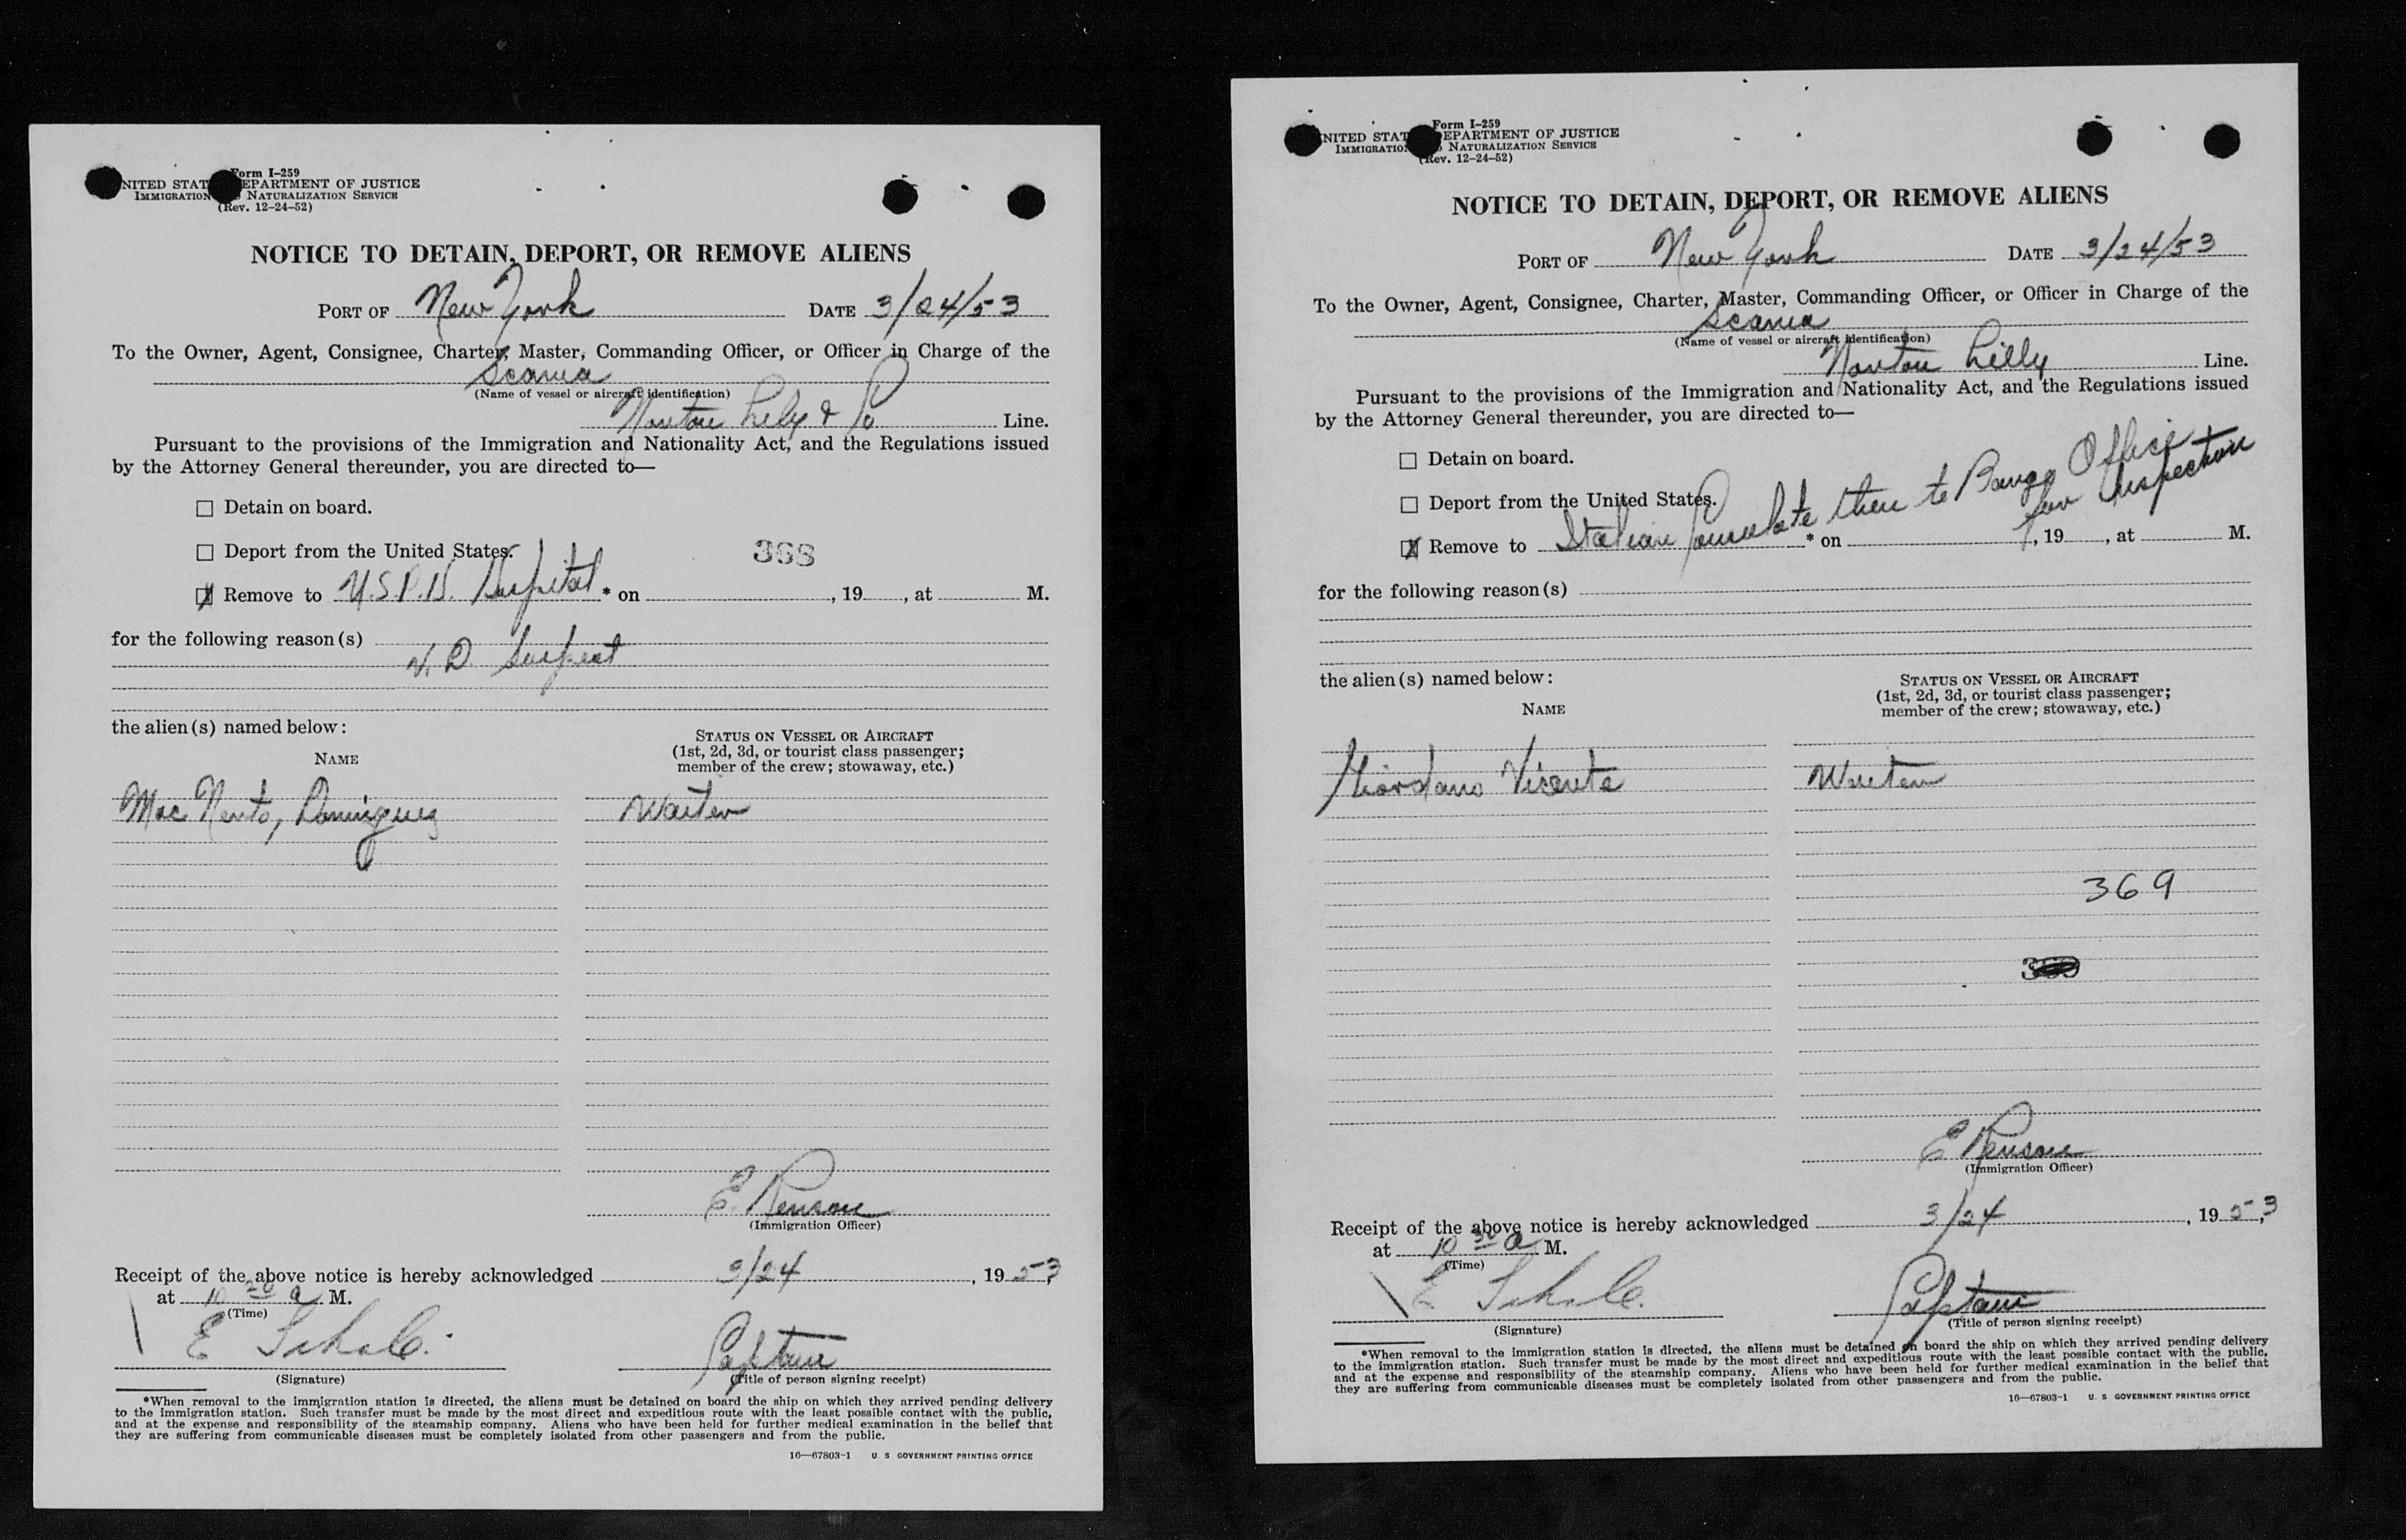 Form I-259
UNITED STATES DEPARTMENT OF JUSTICE
IMMIGRATION AND NATURALIZATION SERVICE
(Rev. 12-24-52)
NOTICE TO DETAIN, DEPORT, OR REMOVE ALIENS
PORT OF New York DATE 3/24/53
To the Owner, Agent, Consignee, Charter, Master, Commanding Officer, or Officer in Charge of the
Scania
(Name of vessel or aircraft identification)
Norton Lily & Co Line.
Pursuant to the provisions of the Immigration and Nationality Act, and the Regulations issued
by the Attorney General thereunder, you are directed to—
☐ Detain on board.
☐ Deport from the United States. 368
☒ Remove to U.S.P.H. Hospital * on , 19 , at M.
for the following reason(s)
V.D. Suspect
the alien(s) named below:
NAME
STATUS ON VESSEL OR AIRCRAFT
(1st, 2d, 3d, or tourist class passenger;
member of the crew; stowaway, etc.)
Mac Nento, Dominguez Waiter
E. Renson
(Immigration Officer)
Receipt of the above notice is hereby acknowledged 3/24, 1953,
at 10 30 a M.
(Time)
E Captain
(Signature) (Title of person signing receipt)
*When removal to the immigration station is directed, the aliens must be detained on board the ship on which they arrived pending delivery
to the immigration station. Such transfer must be made by the most direct and expeditious route with the least possible contact with the public,
and at the expense and responsibility of the steamship company. Aliens who have been held for further medical examination in the belief that
they are suffering from communicable diseases must be completely isolated from other passengers and from the public.
16—67803-1 U. S. GOVERNMENT PRINTING OFFICE
Form I-259
UNITED STATES DEPARTMENT OF JUSTICE
IMMIGRATION AND NATURALIZATION SERVICE
(Rev. 12-24-52)
NOTICE TO DETAIN, DEPORT, OR REMOVE ALIENS
PORT OF New York DATE 3/24/53
To the Owner, Agent, Consignee, Charter, Master, Commanding Officer, or Officer in Charge of the
Scania
(Name of vessel or aircraft identification)
Norton Lilly Line.
Pursuant to the provisions of the Immigration and Nationality Act, and the Regulations issued
by the Attorney General thereunder, you are directed to—
☐ Detain on board.
☐ Deport from the United States.
☒ Remove to Italian Consulate then to Barge Office for Inspection * on , 19 , at M.
for the following reason(s)
the alien(s) named below:
NAME
STATUS ON VESSEL OR AIRCRAFT
(1st, 2d, 3d, or tourist class passenger;
member of the crew; stowaway, etc.)
Giordano Vicente Waiter
369
E Renson
(Immigration Officer)
Receipt of the above notice is hereby acknowledged 3/24, 1953,
at 10 30 a M.
(Time)
E Captain
(Signature) (Title of person signing receipt)
*When removal to the immigration station is directed, the aliens must be detained on board the ship on which they arrived pending delivery
to the immigration station. Such transfer must be made by the most direct and expeditious route with the least possible contact with the public,
and at the expense and responsibility of the steamship company. Aliens who have been held for further medical examination in the belief that
they are suffering from communicable diseases must be completely isolated from other passengers and from the public.
16—67803-1 U. S. GOVERNMENT PRINTING OFFICE